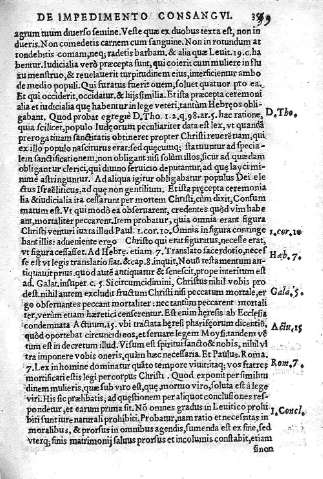 DE IMPEDIMENTO CONSANGVI.
agrum tuum diuerso semine. Veste quæ ex duobus texta est, non in
dueris. Non comedetis carnem cum sanguine. Non in rotundum at
tondebitis comam, neq; radetis barbam, & alia quæ Leuit. 19. c. ha
bentur. Iudicialia verò præcepta sunt, qui coierit cum muliere in flu
xu menstruo, & reuelauerit turpitudinem eius, interficientur ambo
de medio populi. Qui furatus fuerit ouem, soluet quatuor pro ea.
Et qui occiderit, occidatur, & his similia. Et ista præcepta ceremoni
alia et iudicialia quæ habentur in lege veteri, tantùm Hebręos obli-
gabant. Quod probat egregiè D. Tho. 1.2. q. 98. ar. 5. hac ratione,
quia scilicet, populo Iudęorum peculiariter data est lex, vt quandã
prerogatiuam sanctitatis obtineret propter Christi reuerẽtiam, qui
ex illo populo nasciturus erat, sed quęcumq; statuuntur ad specia-
lem sanctificationem, non obligant nisi solùm illos, sicut ad quædam
obligantur clerici, qui diuino seruitio deputantur, ad quę layci mi-
nimè astringuntur. Ad aliqua igitur obligabatur populus Dei ele
ctus Israëliticus, ad quę non gentilium. Et ista pręcepta ceremonia
lia & iudicialia ita cessarunt per mortem Christi, cùm dixit, Consum
matum est. Vt qui modò ea obseruarent, credentes quòd vim habe-
ant, mortaliter peccarent. Item probatur, quia omnia erant figura
Christi venturi iuxta illud Paul. 1. cor. 10. Omnia in figura continge
bant illis: adueniente ergo Christo qui erat figuratus, necesse erat,
vt figura cessaret. Ad Hebr. etiam 7. Translato sacerdotio, necesse
se est vt legis translatio fiat. & cap. 8. inquit, Nouũ testamentum an-
tiquauit prius. quod autẽ antiquatur & senescit, prope interitum est
ad Galat. insuper c. 5. Si circumcidimini, Christus nihil vobis pro
dest. nihil autem excludit fructum Christi nisi peccatum mortale, er
go obseruantes peccant mortaliter: nec tantùm peccarent mortali-
ter, verùm etiam hæretici censerentur. Est enim hęresis ab Ecclesia
condemnata Actuum. 15. vbi tractata hæresi pharisęorum dicentiũ,
quòd oportebat circuncidi eos, et seruare legem Moysi. tandem vi
sum est in decretum illud. Visum est spiritui sancto & nobis, nihil vl
tra imponere vobis oneris, quàm hæc necessaria. Et Paulus. Roma.
7. Lex in homine dominatur quãto tempore viuit. itaq; vos fratres
mortificati estis legi per corpus Christi. Quod exponit per simili
dinem mulieris, quę sub viro est, quę, mortuo viro, soluta est à lege
viri. His sic præhabitis, ad quęstionem per aliquot conclusiones res
pondetur, et earum prima sit. Nõ omnes gradus in Leuitico prohi
biti sunt iure naturali prohibiti. Probatur, nam ratio et necessitas in
moralibus, & prorsus in omnibus agendis, sumenda est ex fine, sed
vterq; finis matrimonij saluus prorsus et incolumis constabit, etiam
sinon
D. Tho.
1. cor. 10
Heb. 7.
Gala. 5.
Actu. 15
Rom. 7.
1. Concl.